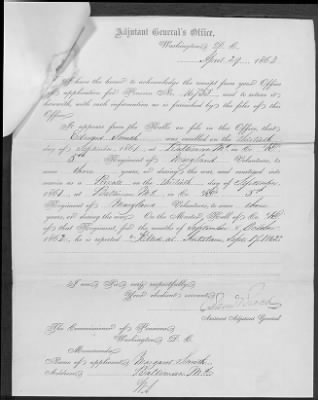 Adjutant General's Office,
Washington, D. C.
April 29, 1863
I have the honor to acknowledge the receipt from your Office
of application for Pension No. and to return it
herewith, with such information as is furnished by the files of this
Office.
It appears from the Rolls on file in this Office, that
Smith was enrolled on the Thirtieth
day of September 1861, at Baltimore Md. in Co.
5th Regiment of Maryland Volunteers, to
serve three years, or during the war, and mustered into
service as a Private on the Thirtieth day of September
1861, at Baltimore Md. in Co. 5th
Regiment of Maryland Volunteers, to serve three
years, or during the war. On the Muster Roll of Co.
of that Regiment, for the months of September & October
1862, he is reported "Killed at Antietam, Sept. 17, 1862."
I am, Sir, very respectfully,
Your obedient servant,
Assistant Adjutant General.
The Commissioner of Pensions,
Washington, D. C.
Memoranda:
Name of applicant, Margaret Smith
Address, Baltimore Md.